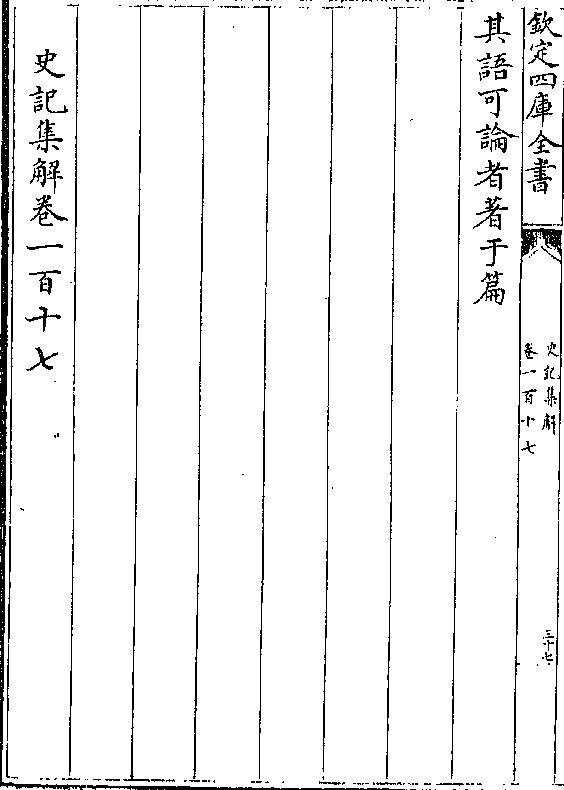 欽定四庫全書
史記集解
卷一百十七
三十七
其語可論者著于篇
史記集解卷一百十七